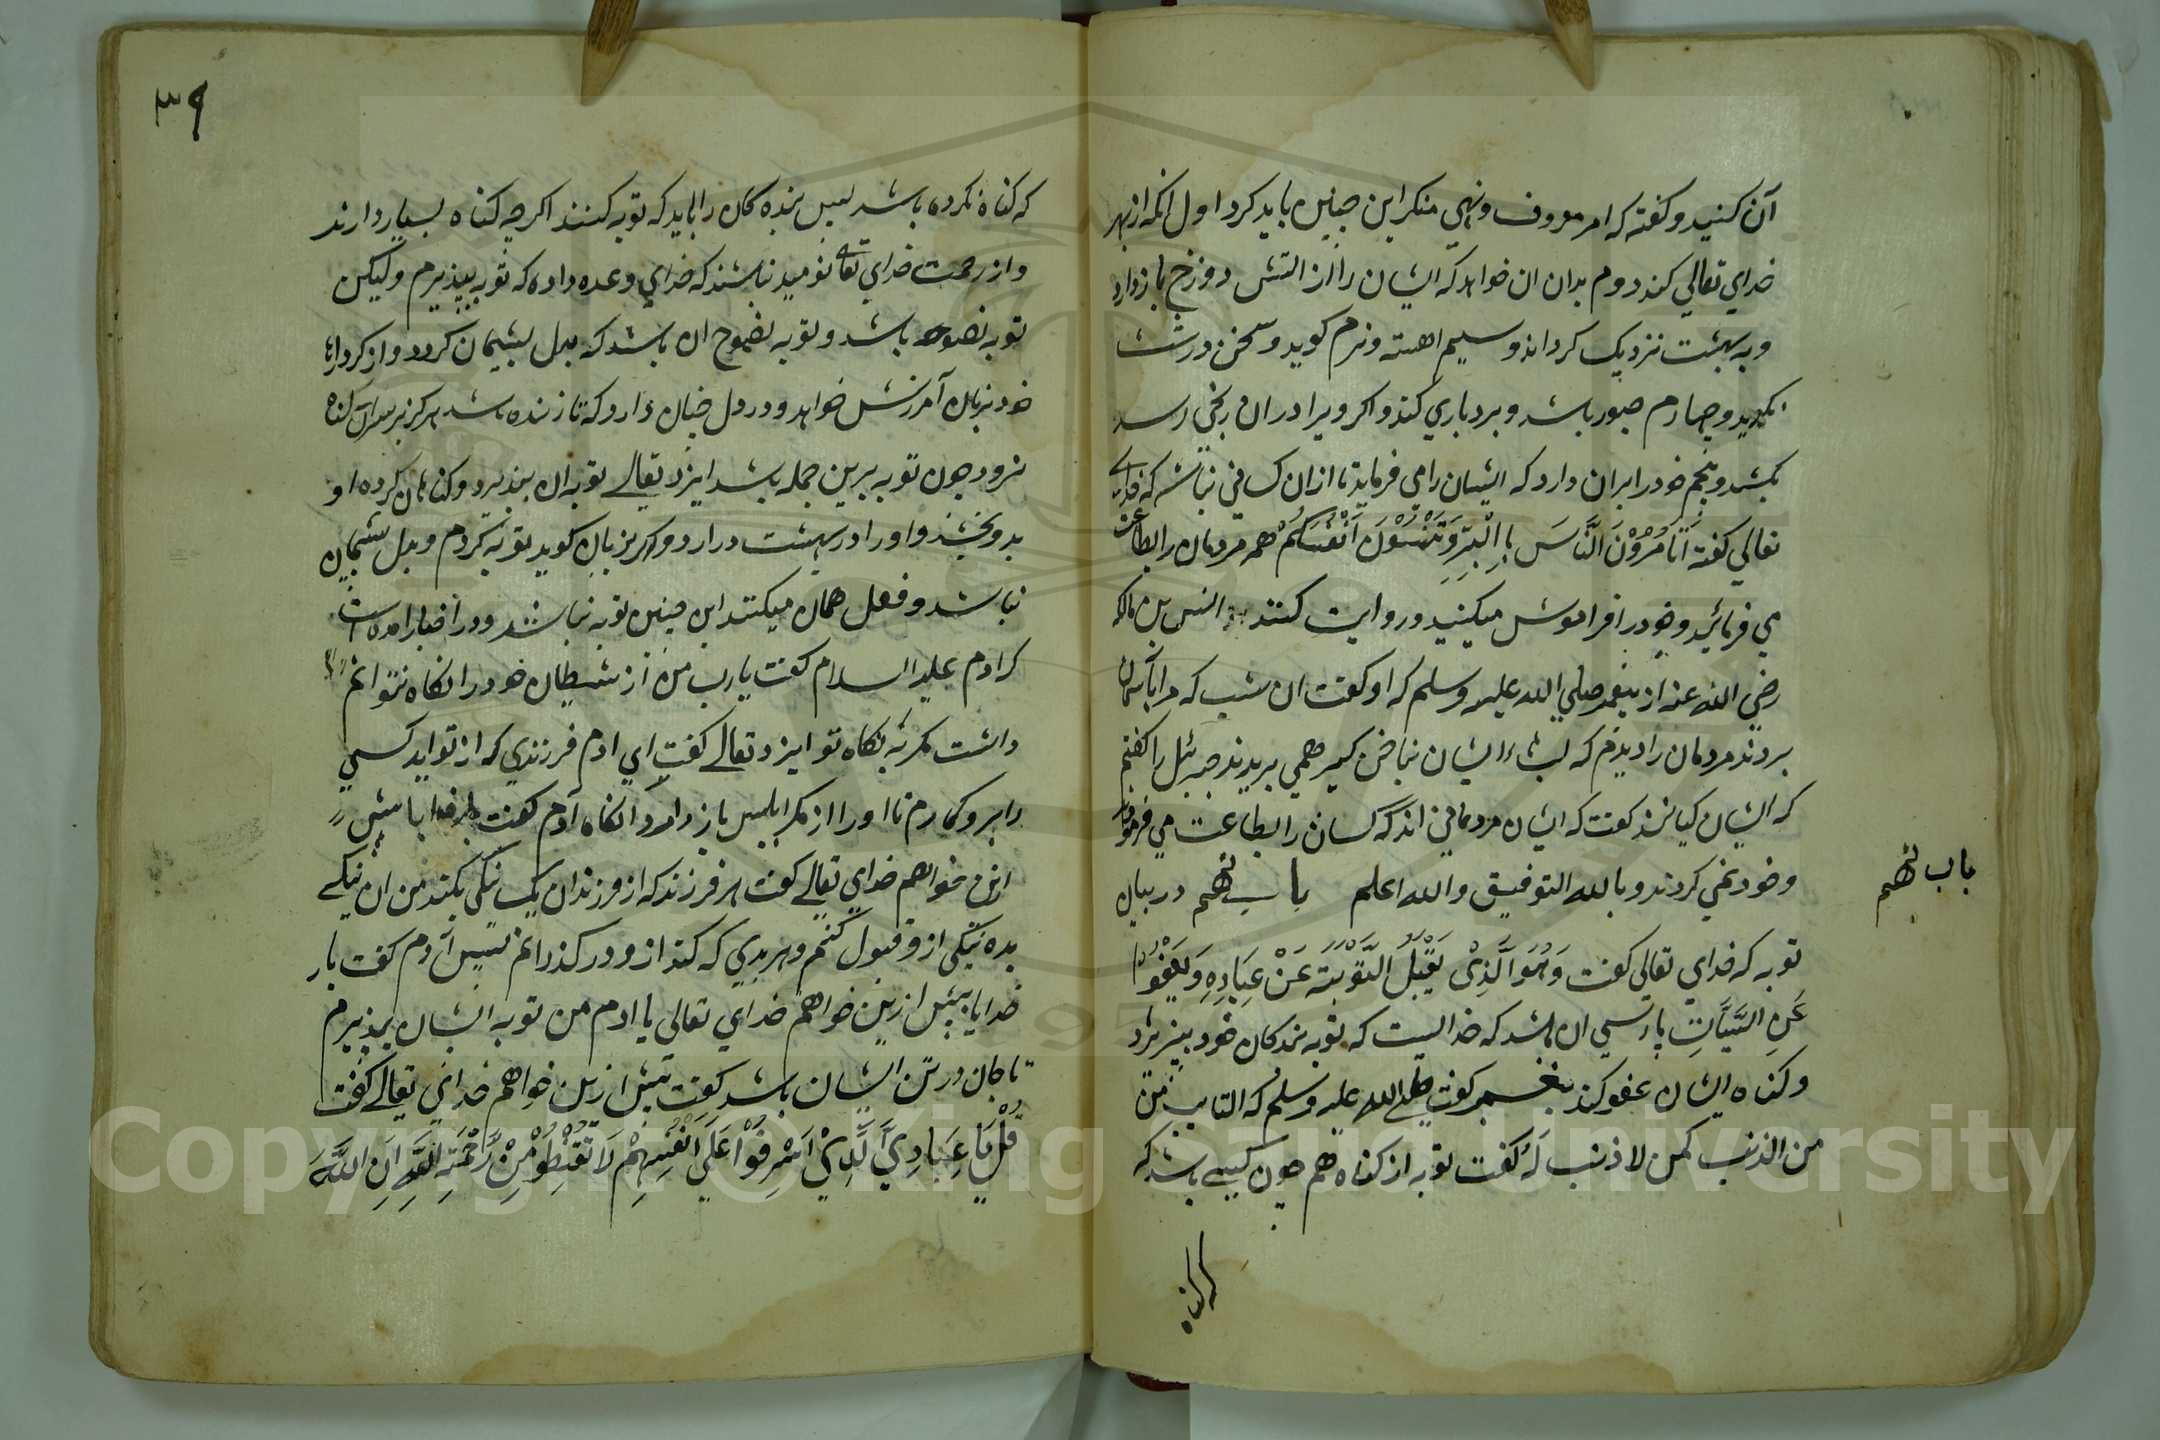 آن کنید و کفته که امر معروف و نهی منکر این چنین باید کرد اول انکه از بهر
خدای تعالی کند دوم بدان ان خواهد که ایشان را از اتش دوزخ بازدارد
و به بهشت نزدیک کرداند و سیم اهسته و نرم کوید و سخن درشت
نکوید و چهارم صبور باشد و بردباری کند و اکر ویرا دران رنجی رسد
بکشد و پنجم خود را بران دارد که ایشان را می فرماید تا از ان کسانی نباشد که خدای
تعالی کفته اَتَأمُرُوْنَ النَّاسَ بِالْبِرِّ وَتَنْسَوْنَ اَنْفُسَکُمْ همه مردمان را بطاعت
می فرمائید و خود را فراموش میکنید و روایت کنند از انس بن مالک
رضی الله عنه از پیغمبر صلی الله علیه وسلم که او کفت ان شب که مرا بآسمان
بردند مردمان را دیدم که لبهاء ایشان بناخن کیر همی بریدند جبرئیل را کفتم
که ایشان کیانند کفت که ایشان مردمانی اند که کسان را بطاعت می فرمودند
و خود نمی کردند و بالله التوفیق والله اعلم باب نهم در بیان
باب نهم
توبه که خدای تعالی کفت وَهُوَ الَّذِیْ یَقْبَلُ التَّوْبَةَ عَنْ عِبَادِهِ وَیَعْفُوْا
عَنِ السَّیِّاٰتِ پارسی ان باشد که خدایست که توبه بندکان خود بپزیرد
و کناه ایشان عفو کند پیغمبر کفت صلی الله علیه وسلم که التایب من
من الذنب کمن لا ذنب لَهُ کفت توبه از کناه هم چون کسی باشد که
که کناه
٣٩
که کناه نکرده باشد پس بنده کان را باید که توبه کنند اکرچه کناه بسیار دارند
و از رحمت خدای تعالی نومید نباشند که خدای وعده داده که توبه بپذیرم ولیکن
توبه نصوحه باشد و توبه نصوح ان باشد که بدل پشیمان کردد و از کردارهاء
خود بزبان آمرزش خواهد و در دل چنان دارد که تا زنده باشد هرکز بر سر آن کناه
نرود چون توبه برین جمله باشد ایزد تعالی توبه ان بپذیرد و کناهان کرده او
بدو بخشد و اورا در بهشت درارد و هر بزبان کوید توبه کردم و بدل پشیمان
نباشد و فعل همان میکند این چنین توبه نباشد و در اخبار امده است
کرادم علیه السلام کفت یا رب من از شیطان خود را نکاه نتوانم
داشت مکر به نکاه تو ایزد تعالی کفت ای ادم فرزندی که از تو اید کسی
را برو کمارم تا اورا از مکر ابلیس باز دارد و انکاه آدم کفت بار خدایا بیش
ازین خواهم خدای تعالی کفت هر فرزند که از فرزندان یک نیکی بکند من ان نیکی
بده نیکی ازو قبول کنم و هر بدی که کند ازو درکذرانم پس آدم کفت بار
خدایا بیش ازین خواهم خدای تعالی یا ادم من توبه ایشان بپذیرم
تا جان در تن ایشان باشد کفت بیش ازین خواهم خدای تعالی کفت
قُلْ یَا عِبَادِیَ الَّذِیْنَ اَسْرَفُوْا عَلَی اَنْفُسِهِمْ لَا تَقْنَطُوْا مِنْ رَّحْمَةِ اللَّهِ اِنَّ اللَّهَ
Copyright © King Saud University